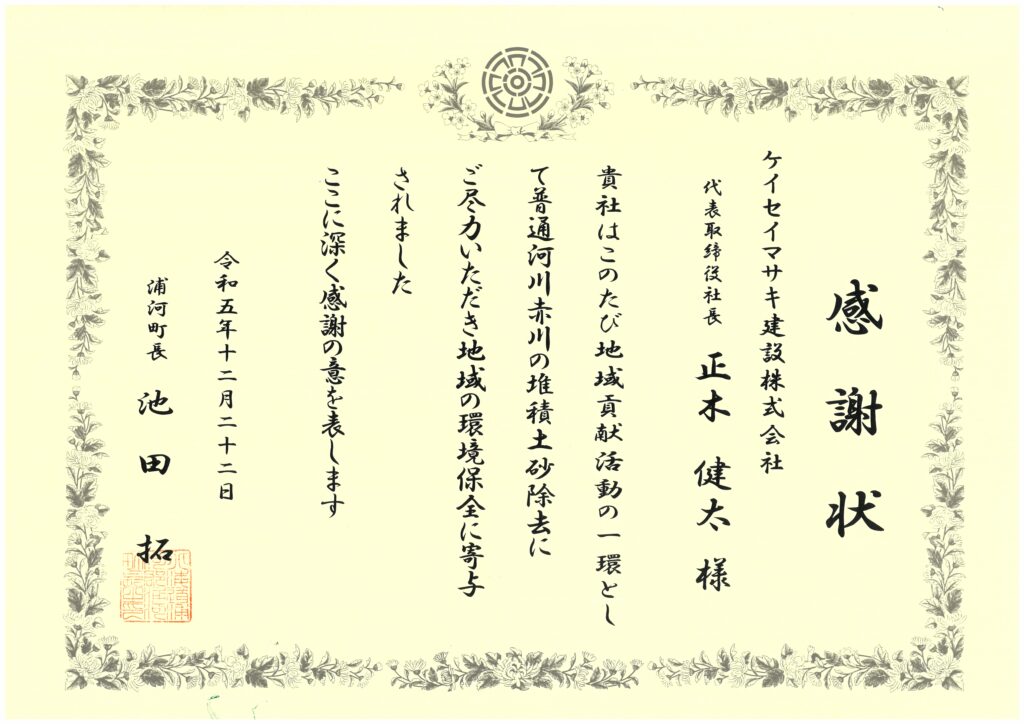 感謝状
ケイセイマサキ建設株式会社
代表取締役社長 正木 健太 様
貴社はこのたび地域貢献活動の一環とし
て普通河川赤川の堆積土砂除去に
ご尽力いただき地域の環境保全に寄与
されました
ここに深く感謝の意を表します
令和五年十二月二十二日
浦河町長 池田 拓